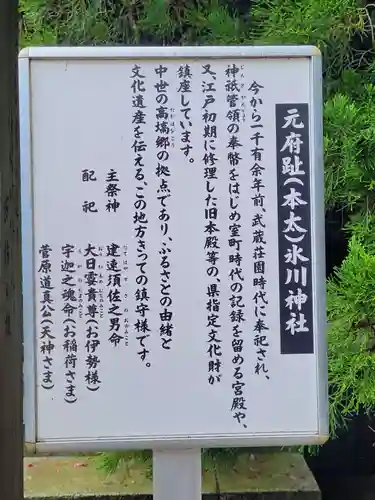 元府趾(本太)氷川神社
今から一千有余年前、武蔵荘園時代に奉祀され、
神祇管領の奉幣をはじめ室町時代の記録を留める宮殿や、
又、江戸初期に修理した旧本殿等の、県指定文化財が
鎮座しています。
中世の高墑郷の拠点であり、ふるさとの由緒と
文化遺産を伝える、この地方きっての鎮守様です。
主祭神 建速須佐之男命
配祀 大日孁貴尊(お伊勢様)
宇迦之魂命(お稲荷さま)
菅原道真公(天神さま)